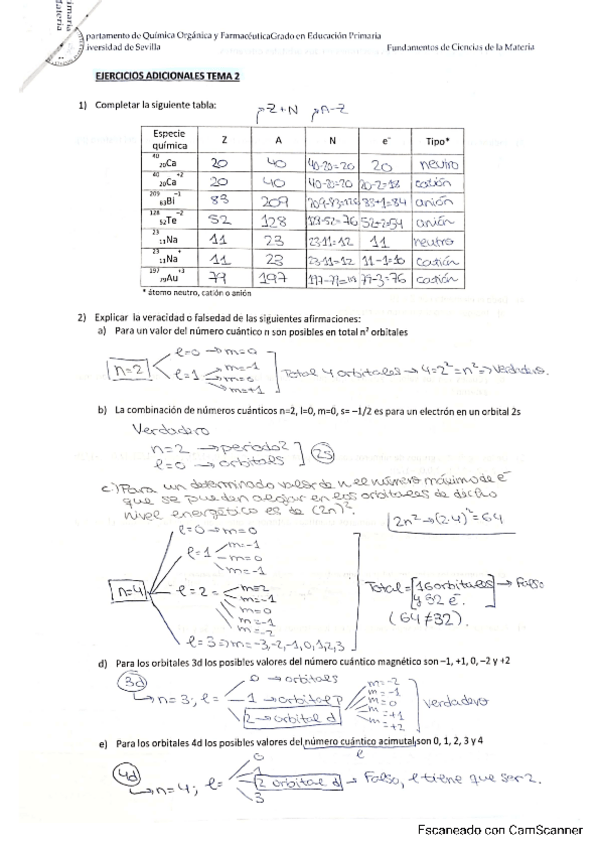 partamento de Química Orgánica y FarmacéuticaGrado en Educación Primaria
iversidad de Sevilla Fundamentos de Ciencias de la Materia
EJERCICIOS ADICIONALES TEMA 2
1) Completar la siguiente tabla: Z+N A-Z
Especie química Z A N e⁻ Tipo*
⁴⁰₂₀Ca 20 40 40-20=20 20 neutro
⁴⁰₂₀Ca⁺² 20 40 40-20=20 20-2=18 catión
²⁰⁹₈₃Bi⁻¹ 83 209 209-83=126 83+1=84 anión
¹²⁸₅₂Te⁻² 52 128 128-52=76 52+2=54 anión
²³₁₁Na 11 23 23-11=12 11 neutro
²³₁₁Na⁺ 11 23 23-11=12 11-1=10 catión
¹⁹⁷₇₉Au⁺³ 79 197 197-79= 79-3=76 catión
* átomo neutro, catión o anión
2) Explicar la veracidad o falsedad de las siguientes afirmaciones:
a) Para un valor del número cuántico n son posibles en total n² orbitales
n=2
l=0 → m=0
l=1 m=-1
m=0
m=+1
Total 4 orbitales → 4=2²=n² ⇒ Verdadero.
b) La combinación de números cuánticos n=2, l=0, m=0, s= –1/2 es para un electrón en un orbital 2s
Verdadero
n=2 → periodo 2
l=0 → orbital s
2s
c.) Para un determinado valor de n el número máximo de e⁻
que se puedan alojar en los orbitales de dicho
nivel energético es de (2n)².
2n² → (2·4)² = 64
n=4
l=0 → m=0
l=1 m=-1
m=0
m=-1
l=2 = m=2
m=-1
m=0
m=-1
m=-2
l=3 ⇒ m=-3,-2,-1,0,1,2,3
Total = [16 orbitales
y 32 e⁻.] → Falso
(64≠32).
d) Para los orbitales 3d los posibles valores del número cuántico magnético son –1, +1, 0, –2 y +2
3d
n=3; l=
0 → orbital s
1 → orbital p
2 → orbital d
m=-2
m=-1
m=0
m=+1
m=+2
verdadero
e) Para los orbitales 4d los posibles valores del número cuántico acimutal son 0, 1, 2, 3 y 4
l
4d
n=4; l=
0
1
2 orbital d → Falso, l tiene que ser 2.
3
Escaneado con CamScanner